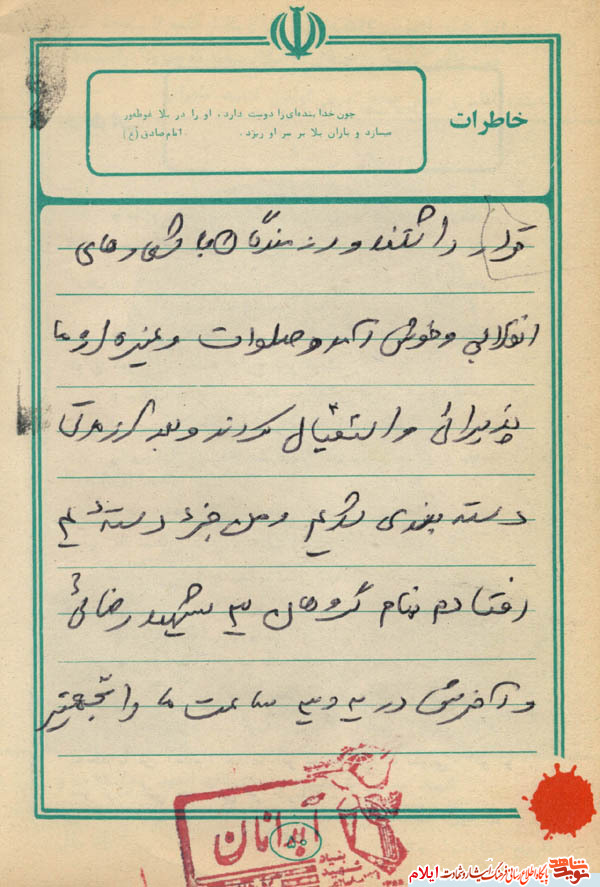 خاطرات
چون خدا بنده‌ای را دوست دارد، او را در بلا غوطه‌ور
میسازد و باران بلا بر سر او ریزد. امام صادق (ع)
قرار داشتند و رزمندگان با شعارهای
انقلابی و خوش آمد و صلوات و غیره از ما
پذیرائی و استقبال کردند و بعد از مدتی
دسته بندی شدیم و من جزء دسته
افتادم بنام گروهان شهید رضائی
و آخرش در ساعت ما را
آبدانان
بنیاد
شهید
نوید شاهد
پایگاه اطلاع رسانی فرهنگ ایثار و شهادت ایلام